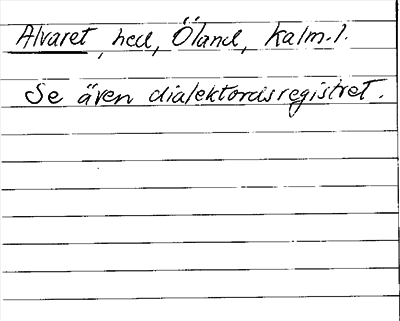 Alvaret, hed, Öland, Kalm. l.
Se även dialektordsregistret.